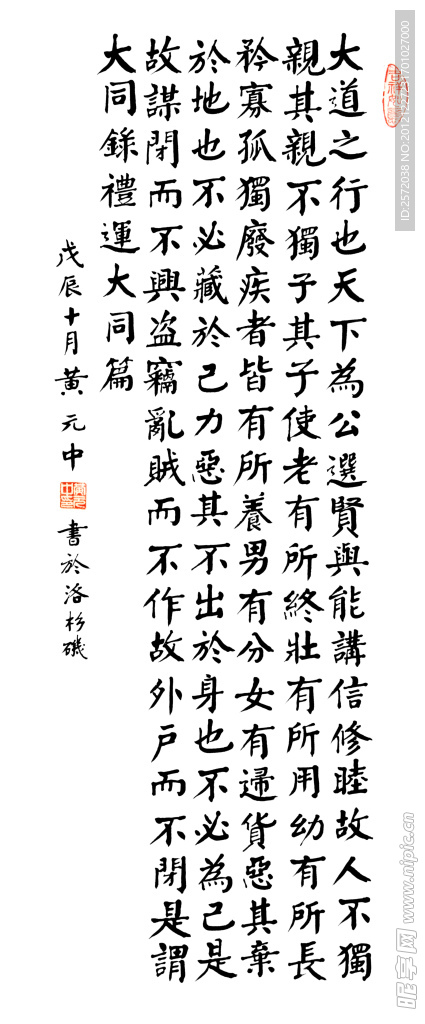 大道之行也天下為公選賢與能講信修睦故人不獨
親其親不獨子其子使老有所終壯有所用幼有所長
矜寡孤獨廢疾者皆有所養男有分女有歸貨惡其棄
於地也不必藏於己力惡其不出於身也不必為己是
故謀閉而不興盜竊亂賊而不作故外戶而不閉是謂
大同錄禮運大同篇
戊辰十月黃元中
書於洛杉磯
昵享网 www.nipic.cn